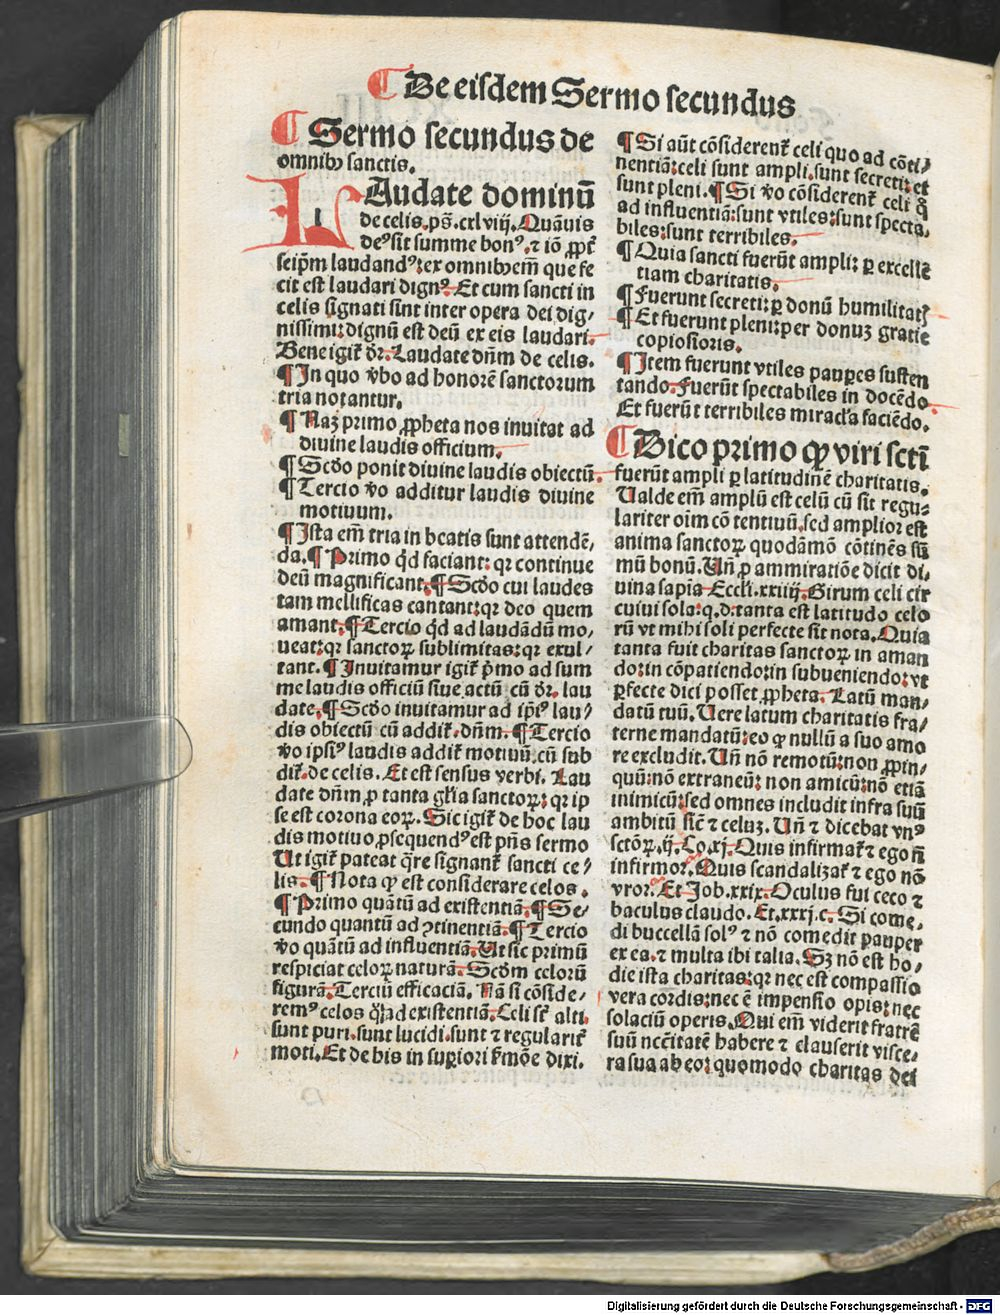 ¶ De eisdem Sermo secundus
¶ Sermo secundus de
omnibꝫ sanctis.
LAudate dominū
de celis. ps̄. cxlviij. Quāuis
deꝰ sit summe bonꝰ. ⁊ iō ꝓpt̄
seip̄m laudandꝰ: ex omnibꝫ em̄ que fe
cit est laudari dignꝰ. Et cum sancti in
celis signati sint inter opera dei dig⸗
nissimi: dignū est deū ex eis laudari.
Bene igit̄ dr̄. Laudate dn̄m de celis.
¶ In quo v̄bo ad honorē sanctorum
tria notantur.
¶ Naꝫ primo ꝓpheta nos inuitat ad
diuine laudis officium.
¶ Scd̄o ponit diuine laudis obiectū.
¶ Tercio v̄o additur laudis diuine
motiuum.
¶ Ista em̄ tria in beatis sunt attendē⸗
da. ¶ Primo qd̄ faciant: qꝛ continue
deū magnificant. ¶ Scd̄o cui laudes
tam mellificas cantant: qꝛ deo quem
amant. ¶ Tercio qd̄ ad laudādū mo⸗
ueat: qꝛ sanctoꝝ sublimitas: qꝛ exul⸗
tant. ¶ Inuitamur igit̄ p̄mo ad sum
me laudis officiū siue actū cū dr̄. lau
date. ¶ Scd̄o inuitamur ad ip̄iꝰ lau⸗
dis obiectū cū addit̄. dn̄m. ¶ Tercio
v̄o ipsiꝰ laudis addit̄ motiuū: cū sub
dit̄. de celis. Et est sensus verbi. Lau
date dn̄m ꝓ tanta gl̄ia sanctoꝝ: qꝛ ip
se est corona eoꝝ. Sic igit̄ de hoc lau
dis motiuo ꝓsequendꝰ est pn̄s sermo
Ut igit̄ pateat q̄re signant̄ sancti ce⸗
lis. ¶ Nota ꝙ est considerare celos.
¶ Primo quātū ad existentiā. ¶ Se⸗
cundo quantū ad ꝯtinentiā. ¶ Tercio
v̄o quātū ad influentiā. Ut sic primū
respiciat celoꝝ naturā. Scd̄m celorū
figurā. Terciū efficaciā. Nā si cōside⸗
remꝰ celos q̄ꝫ ad existentiā. Celi sc̄ alti.
sunt puri. sunt lucidi. sunt ⁊ regularit̄
moti. Et de his in superiori s̄mōe dixi.
¶ Si aūt cōsiderent̄ celi quo ad cōti⸗
nentiā: celi sunt ampli. sunt secreti: et
sunt pleni. ¶ Si v̄o cōsiderent̄ celi q̄ꝫ
ad influentiā: sunt vtiles: sunt specta⸗
biles: sunt terribiles.
¶ Quia sancti fuerūt ampli: ꝑ excellē
tiam charitatis.
¶ Fuerunt secreti: ꝑ donū humilitatꝭ
¶ Et fuerunt pleni: per donuꝫ gratie
copiosioris.
¶ Item fuerunt vtiles pauꝑes susten
tando. Fuerūt spectabiles in docēdo.
Et fuerūt terribiles miracl̄a faciēdo.
¶ Dico primo ꝙ viri sctī
fuerūt ampli ꝑ latitudinē charitatis.
Ualde em̄ amplū est celū cū sit regu⸗
lariter oīm cōtentiuū, sed amplior est
anima sanctoꝝ quodāmō cōtinēs sū
mū bonū. Un̄ ꝓ ammiratiōe dicit di⸗
uina sapīa Eccl̄i. xxiiij. Girum celi cir
cuiui sola: q. d. tanta est latitudo celo
rū vt mihi soli perfecte sit nota. Quia
tanta fuit charitas sanctoꝝ in aman
do: in cōpatiendo: in subueniendo: vt
ꝑfecte dici posset ꝓpheta. Latū man⸗
datū tuū. Uere latum charitatis fra⸗
terne mandatū: eo ꝙ nullū a suo amo
re excludit. Un̄ nō remotū: non ꝓpin⸗
quū: nō extraneū: non amicū: nō etiā
inimicū: sed omnes includit infra suū
ambitū sic̄ ⁊ celuꝫ. Un̄ ⁊ dicebat vnꝰ
sctōꝝ. ij. Co. xj. Quis infirmat̄ ⁊ ego n̄
infirmor. Quis scandalizat̄ ⁊ ego nō
vror. Et Job. xxix. Oculus fui ceco ⁊
baculus claudo. Et. xxxj. c. Si come⸗
di buccellā solꝰ ⁊ nō comedit pauper
ex ea. ⁊ multa ibi talia. Sꝫ nō est ho⸗
die ista charitas: qꝛ nec est compassio
vera cordis: nec ē impensio opis: nec
solaciū operis. Qui em̄ viderit fratrē
suū nccītatē habere ⁊ clauserit visce⸗
ra sua ab eo: quomodo charitas dei
Digitalisierung gefördert durch die Deutsche Forschungsgemeinschaft - DFG